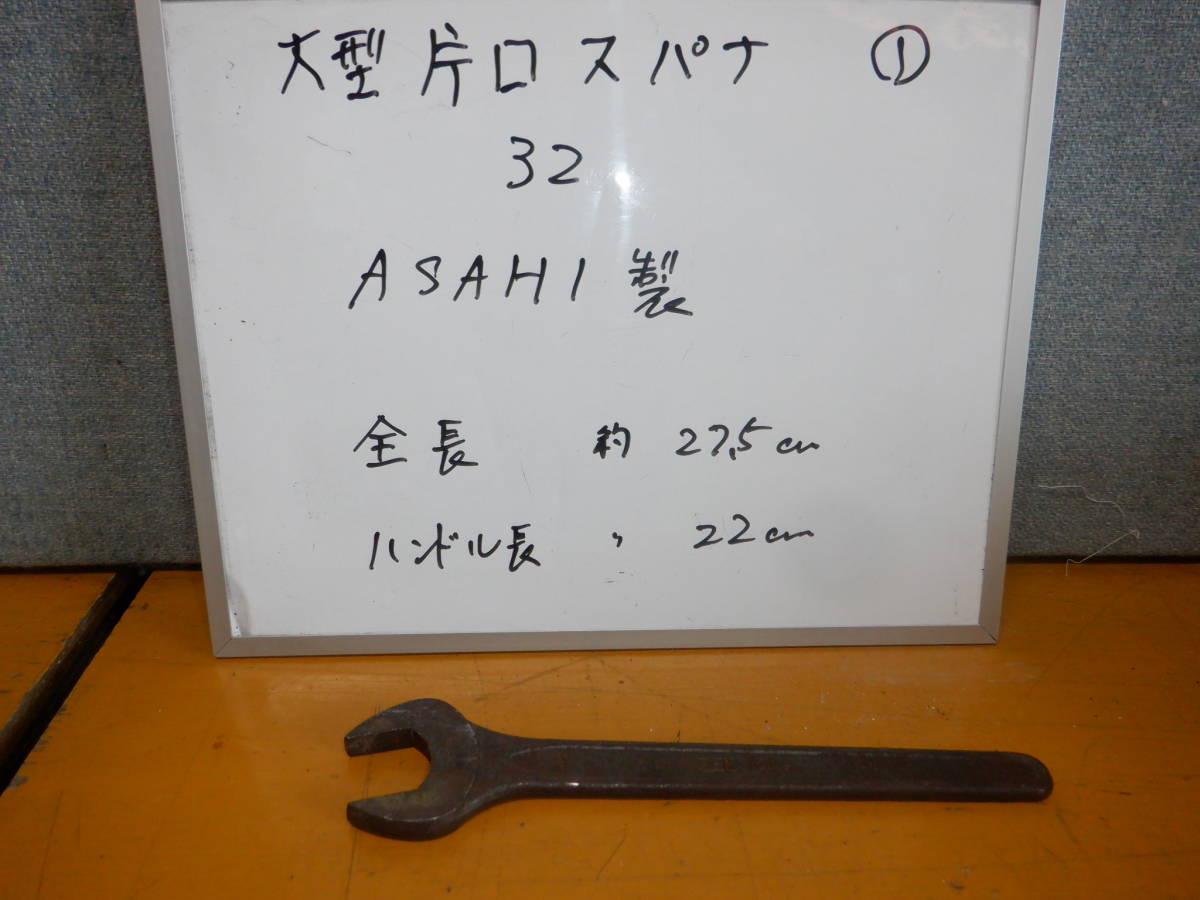 大型片口スパナ ①
32
ASAHI製
全長 約 27.5cm
ハンドル長 〃 22cm